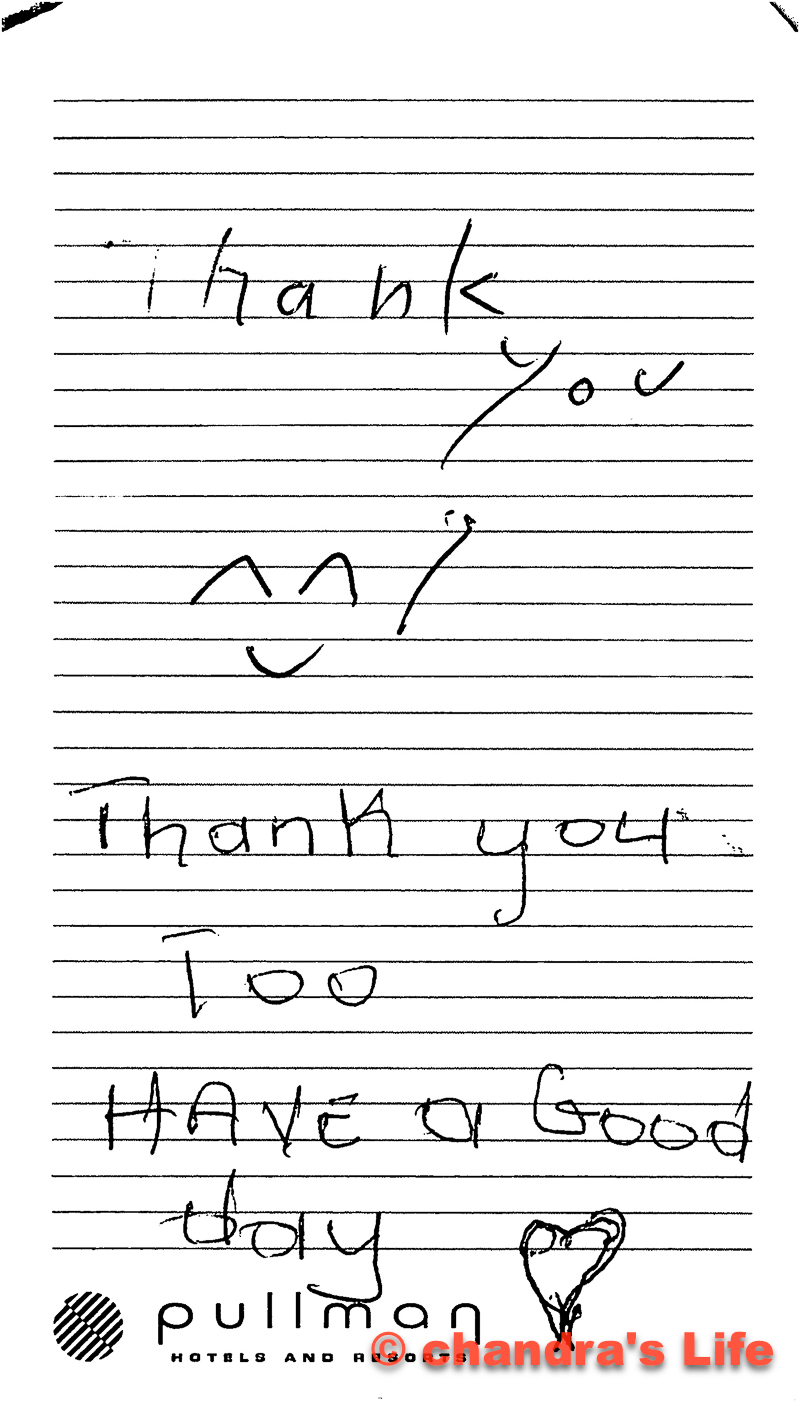 Thank
you
Thank you
Too
HAVE a Good
day
pullman
HOTELS AND RESORTS
© chandra's Life